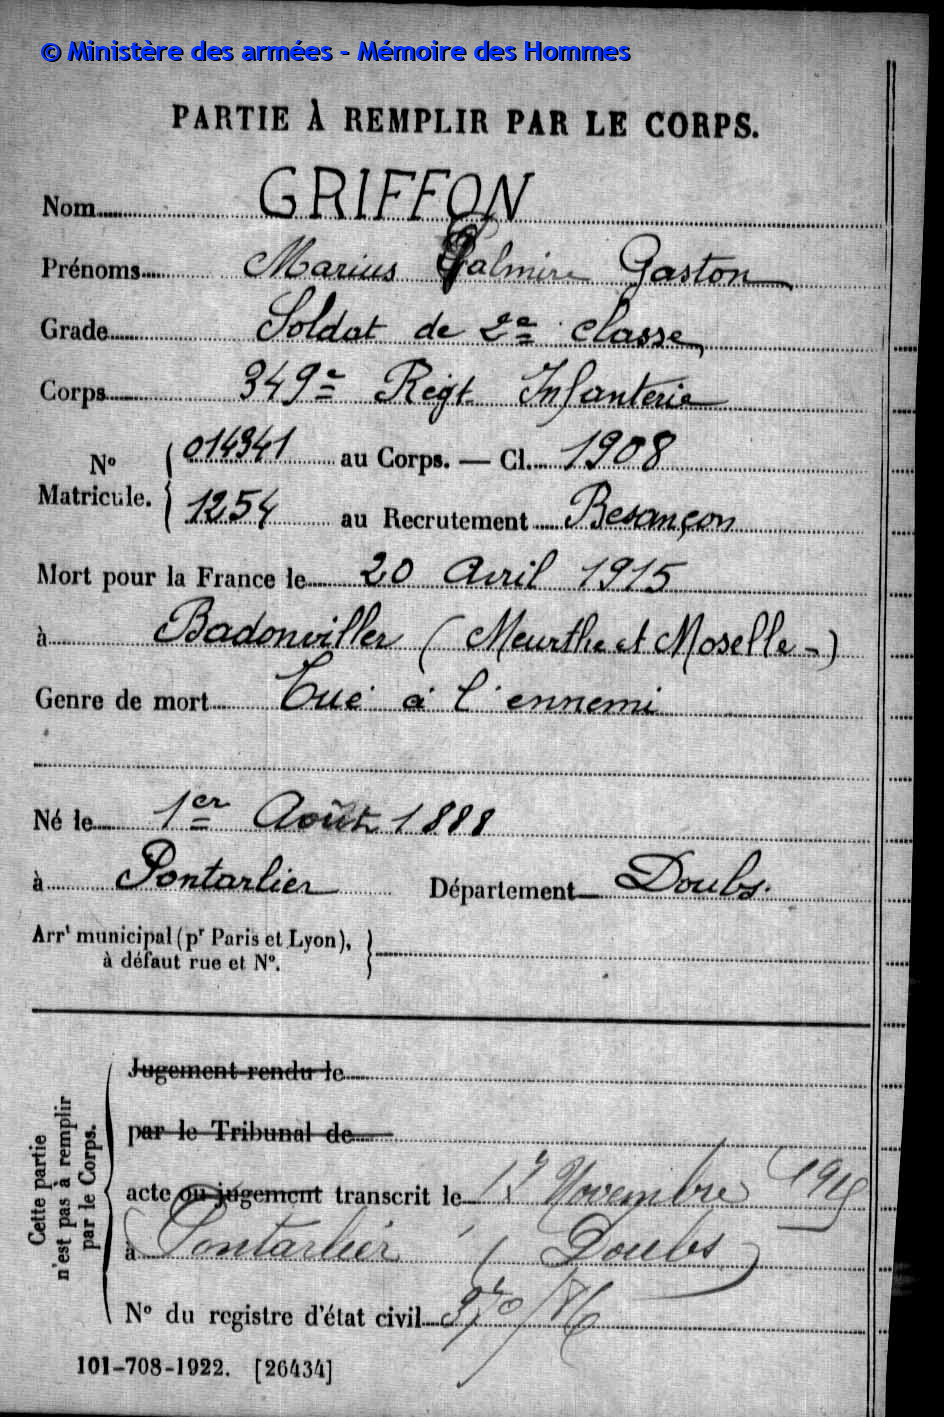 © Ministère des armées - Mémoire des Hommes
PARTIE À REMPLIR PAR LE CORPS.
Nom GRIFFON
Prénoms Marius Palmire Gaston
Grade Soldat de 2e classe
Corps 349e Régt Infanterie
No Matricule. { 014341 au Corps. — Cl. 1908
1254 au Recrutement Besançon
Mort pour la France le 20 Avril 1915
à Badonviller (Meurthe et Moselle-)
Genre de mort Tué à l'ennemi
Né le 1er Août 1888
à Pontarlier Département Doubs.
Arrt municipal (pr Paris et Lyon), }
à défaut rue et No.
Cette partie
n'est pas à remplir
par le Corps.
Jugement rendu le
par le Tribunal de
acte ou jugement transcrit le 17 Novembre 1915
à Pontarlier (Doubs)
No du registre d'état civil
101-708-1922. [26434]